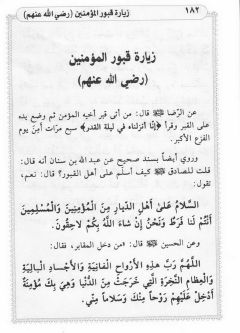 ١٨٢ زيارة قبور المؤمنين (رضي الله عنهم)
زيارة قبور المؤمنين
(رضي الله عنهم)
عن الرّضا قال: من أتى قبر أخيه المؤمن ثم وضع يده
على القبر وقرأ ﴿إنّا أنزلناه في ليلة القدر﴾ سبع مرّات أمِنَ يوم
الفزع الأكبر.
وروي أيضاً بسند صحيح عن عبد الله بن سنان أنه قال:
قلت للصادق كيف أسلّم على أهل القبور؟ قال: نعم،
تقول:
السَّلامُ عَلَى أَهْلِ الدِّيارِ مِنَ الْمُؤْمِنِينَ وَالْمُسْلِمِينَ
أَنْتُمْ لَنَا فَرَطٌ وَنَحْنُ إِنْ شاءَ اللَّهُ بِكُمْ لاحِقُونَ.
وعن الحسين قال: «من دخل المقابر، فقال:
اللَّهُمَّ رَبَّ هذِهِ الأَرْواحِ الْفانِيَةِ وَالأَجْسادِ الْبالِيَةِ
وَالْعِظامِ النَّخِرَةِ الَّتِي خَرَجَتْ مِنَ الدُّنْيا وَهِيَ بِكَ مُؤْمِنَةٌ
أَدْخِلْ عَلَيْهِمْ رَوْحاً مِنْكَ وَسَلاماً مِنِّي.